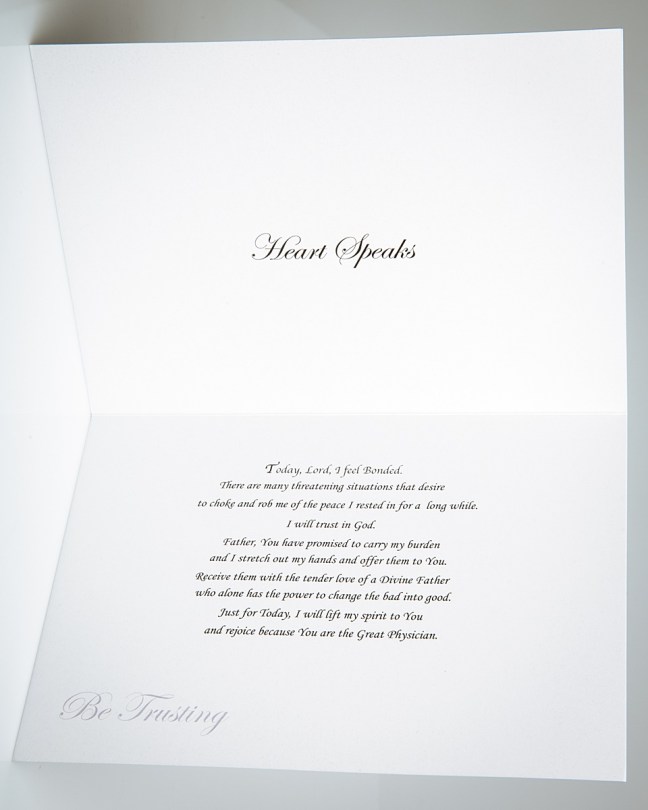 Heart Speaks
Today, Lord, I feel Bonded.
There are many threatening situations that desire
to choke and rob me of the peace I rested in for a long while.
I will trust in God.
Father, You have promised to carry my burden
and I stretch out my hands and offer them to You.
Receive them with the tender love of a Divine Father
who alone has the power to change the bad into good.
Just for Today, I will lift my spirit to You
and rejoice because You are the Great Physician.
Be Trusting